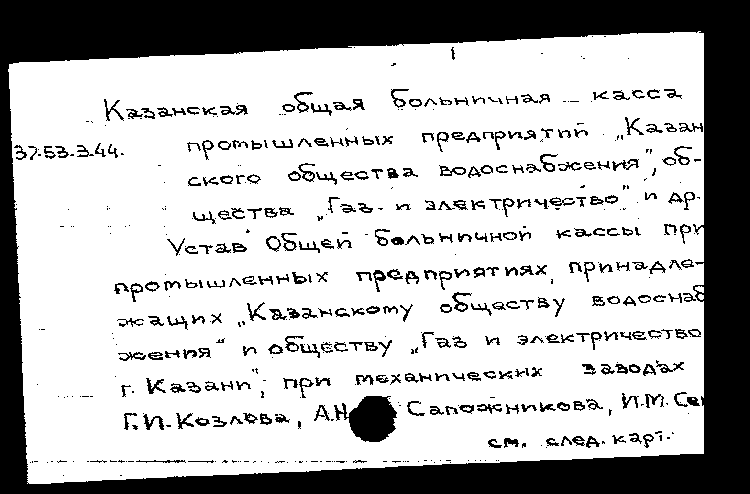 Казанская общая больничная касса
37.53.3.44. промышленных предприятий „Казан
ского общества водоснабжения", об-
щества „Газ и электричество" и др.
Устав Общей больничной кассы при
промышленных предприятиях, принадле-
жащих „Казанскому обществу водоснаб
жения" и обществу „Газ и электричество
г. Казани", при механических заводах
Г.И. Козлова, А.Н. Сапожникова, И.М.
см. след. карт.